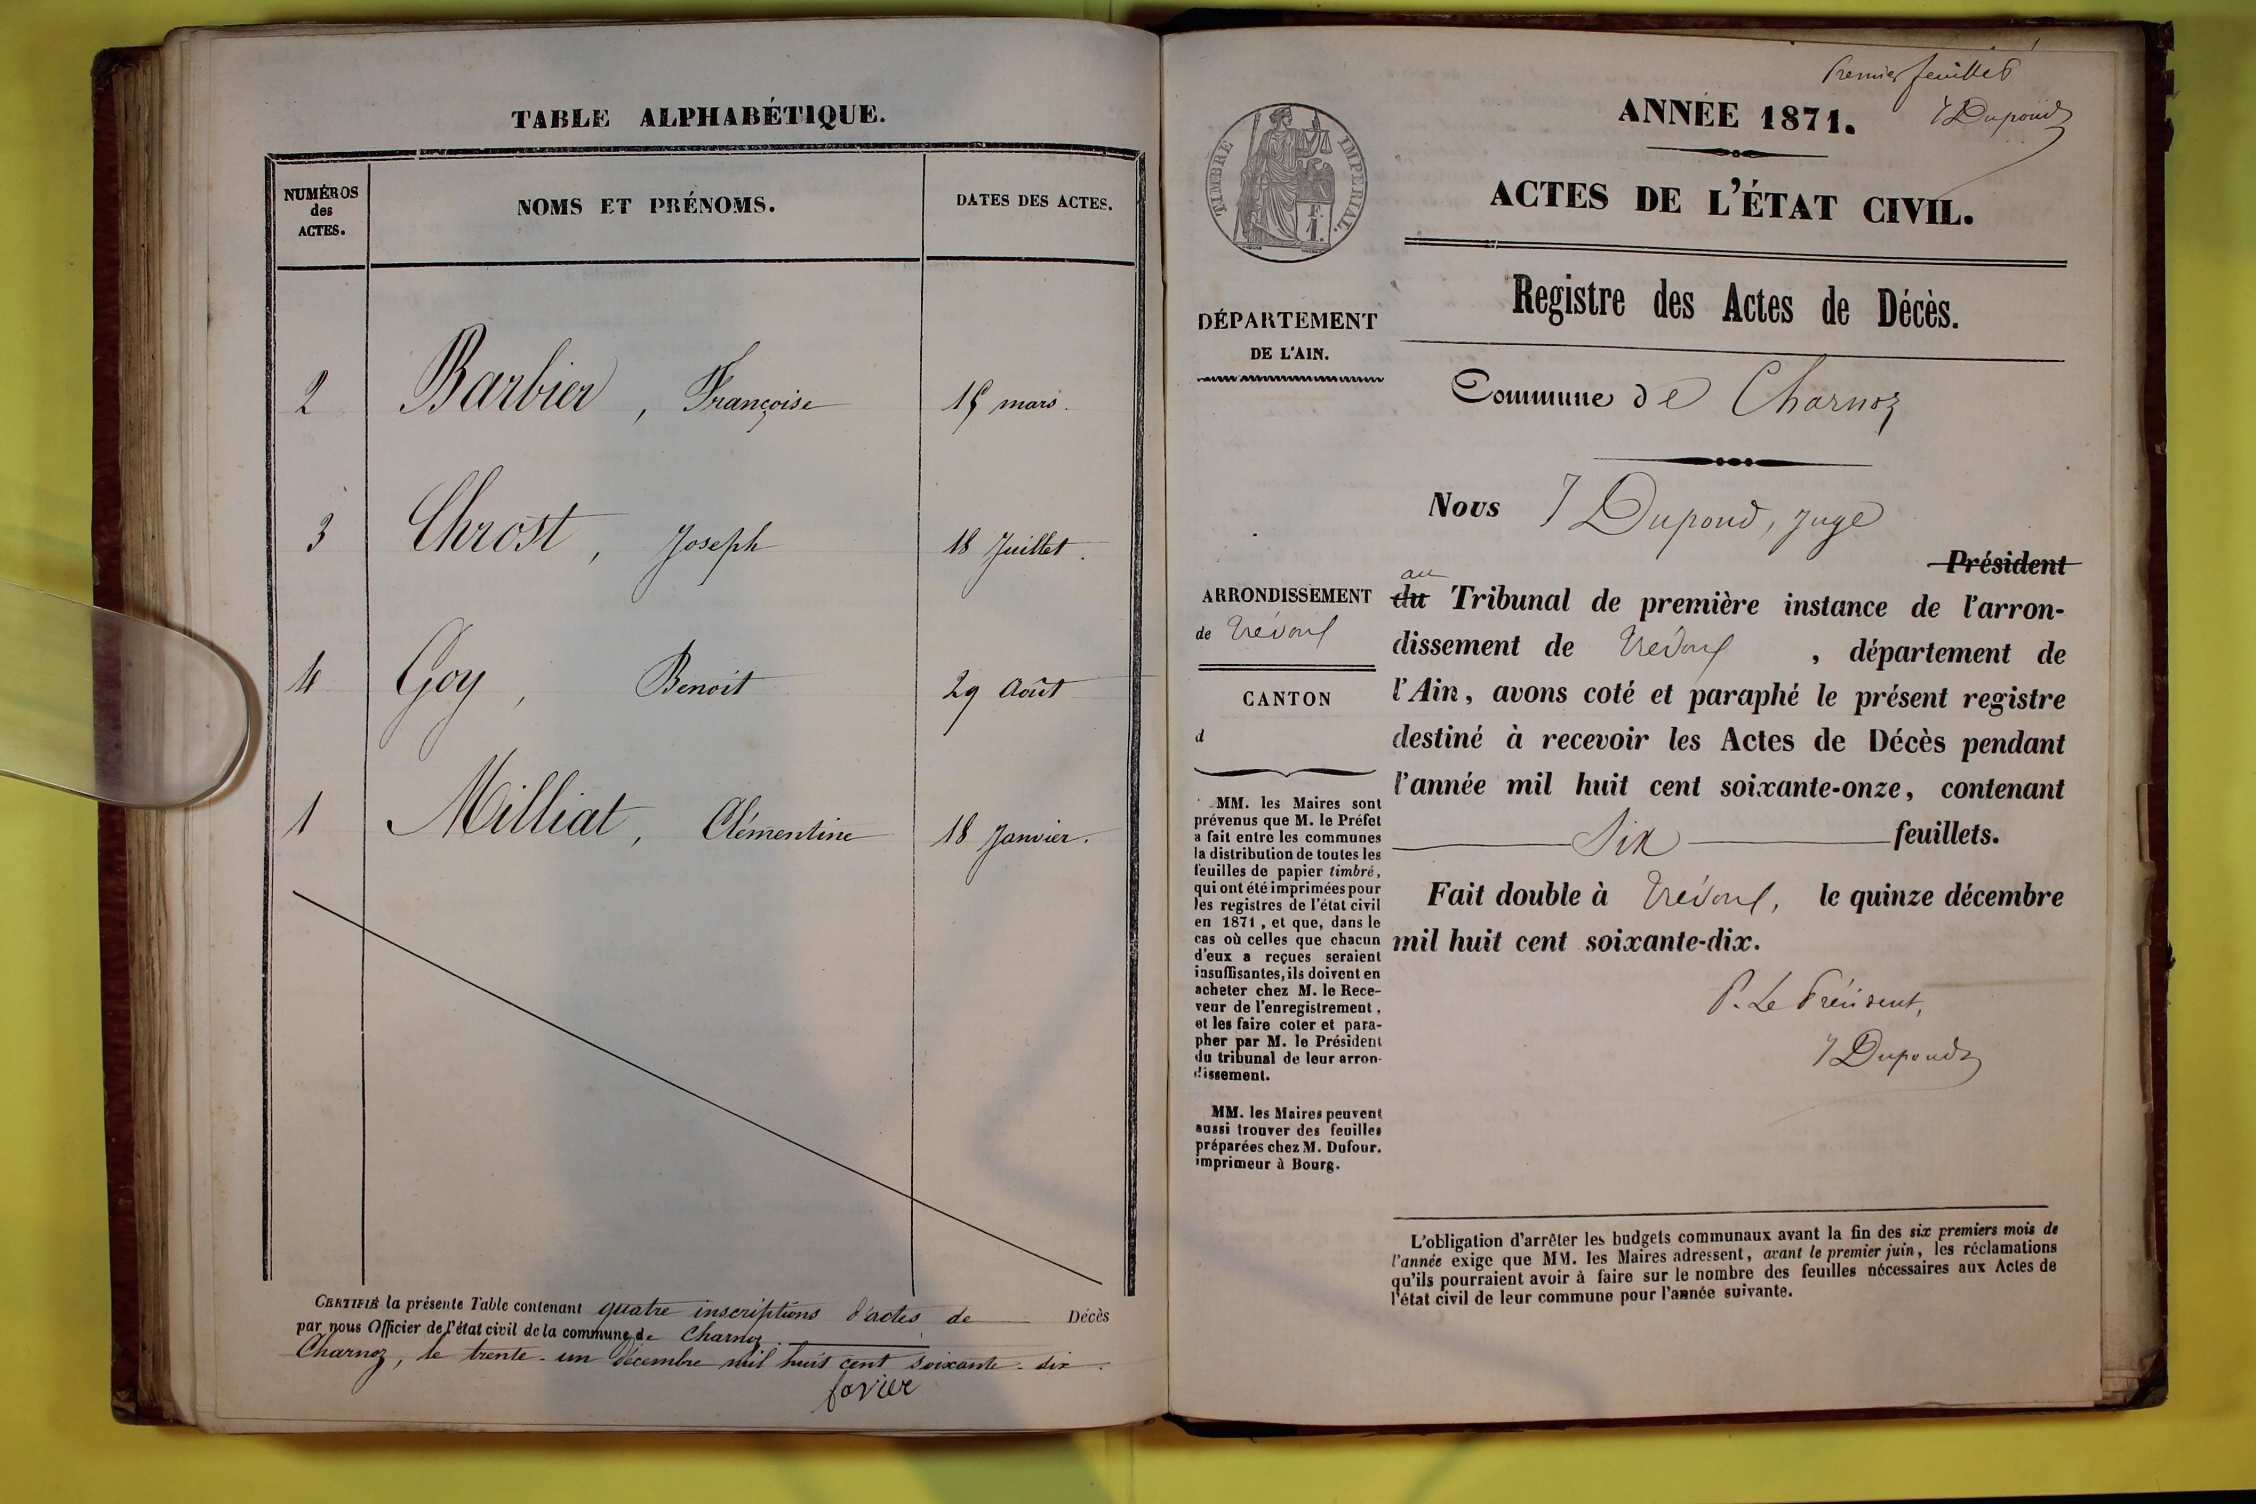 TABLE ALPHABÉTIQUE.
NUMÉROS
des
ACTES.
NOMS ET PRÉNOMS.
DATES DES ACTES.
2 Barbier, Françoise 15 mars.
3 Chrost, Joseph 18 Juillet.
4 Goy, Benoit 29 Août
1 Milliat, Clémentine 18 Janvier.
CERTIFIÉ la présente Table contenant quatre inscriptions d'actes de Décès
par nous Officier de l'état civil de la commune de Charnoz
Charnoz, le trente-un décembre mil huit cent soixante-dix.
favier
Premier feuillet
J Dupond
TIMBRE IMPÉRIAL.
F.
1.
ANNÉE 1871.
ACTES DE L'ÉTAT CIVIL.
Registre des Actes de Décès.
Commune de Charnoz
DÉPARTEMENT
DE L'AIN.
ARRONDISSEMENT
de Trévoux
CANTON
d
MM. les Maires sont
prévenus que M. le Préfet
a fait entre les communes
la distribution de toutes les
feuilles de papier timbré,
qui ont été imprimées pour
les registres de l'état civil
en 1871, et que, dans le
cas où celles que chacun
d'eux a reçues seraient
insuffisantes, ils doivent en
acheter chez M. le Rece-
veur de l'enregistrement,
et les faire coter et para-
pher par M. le Président
du tribunal de leur arron-
dissement.
MM. les Maires peuvent
aussi trouver des feuilles
préparées chez M. Dufour.
imprimeur à Bourg.
Nous J Dupond, Juge
Président
au
du Tribunal de première instance de l'arron-
dissement de Trévoux, département de
l'Ain, avons coté et paraphé le présent registre
destiné à recevoir les Actes de Décès pendant
l'année mil huit cent soixante-onze, contenant
Six feuillets.
Fait double à Trévoux, le quinze décembre
mil huit cent soixante-dix.
P. Le Président,
J Dupond
L'obligation d'arrêter les budgets communaux avant la fin des six premiers mois de
l'année exige que MM. les Maires adressent, avant le premier juin, les réclamations
qu'ils pourraient avoir à faire sur le nombre des feuilles nécessaires aux Actes de
l'état civil de leur commune pour l'année suivante.